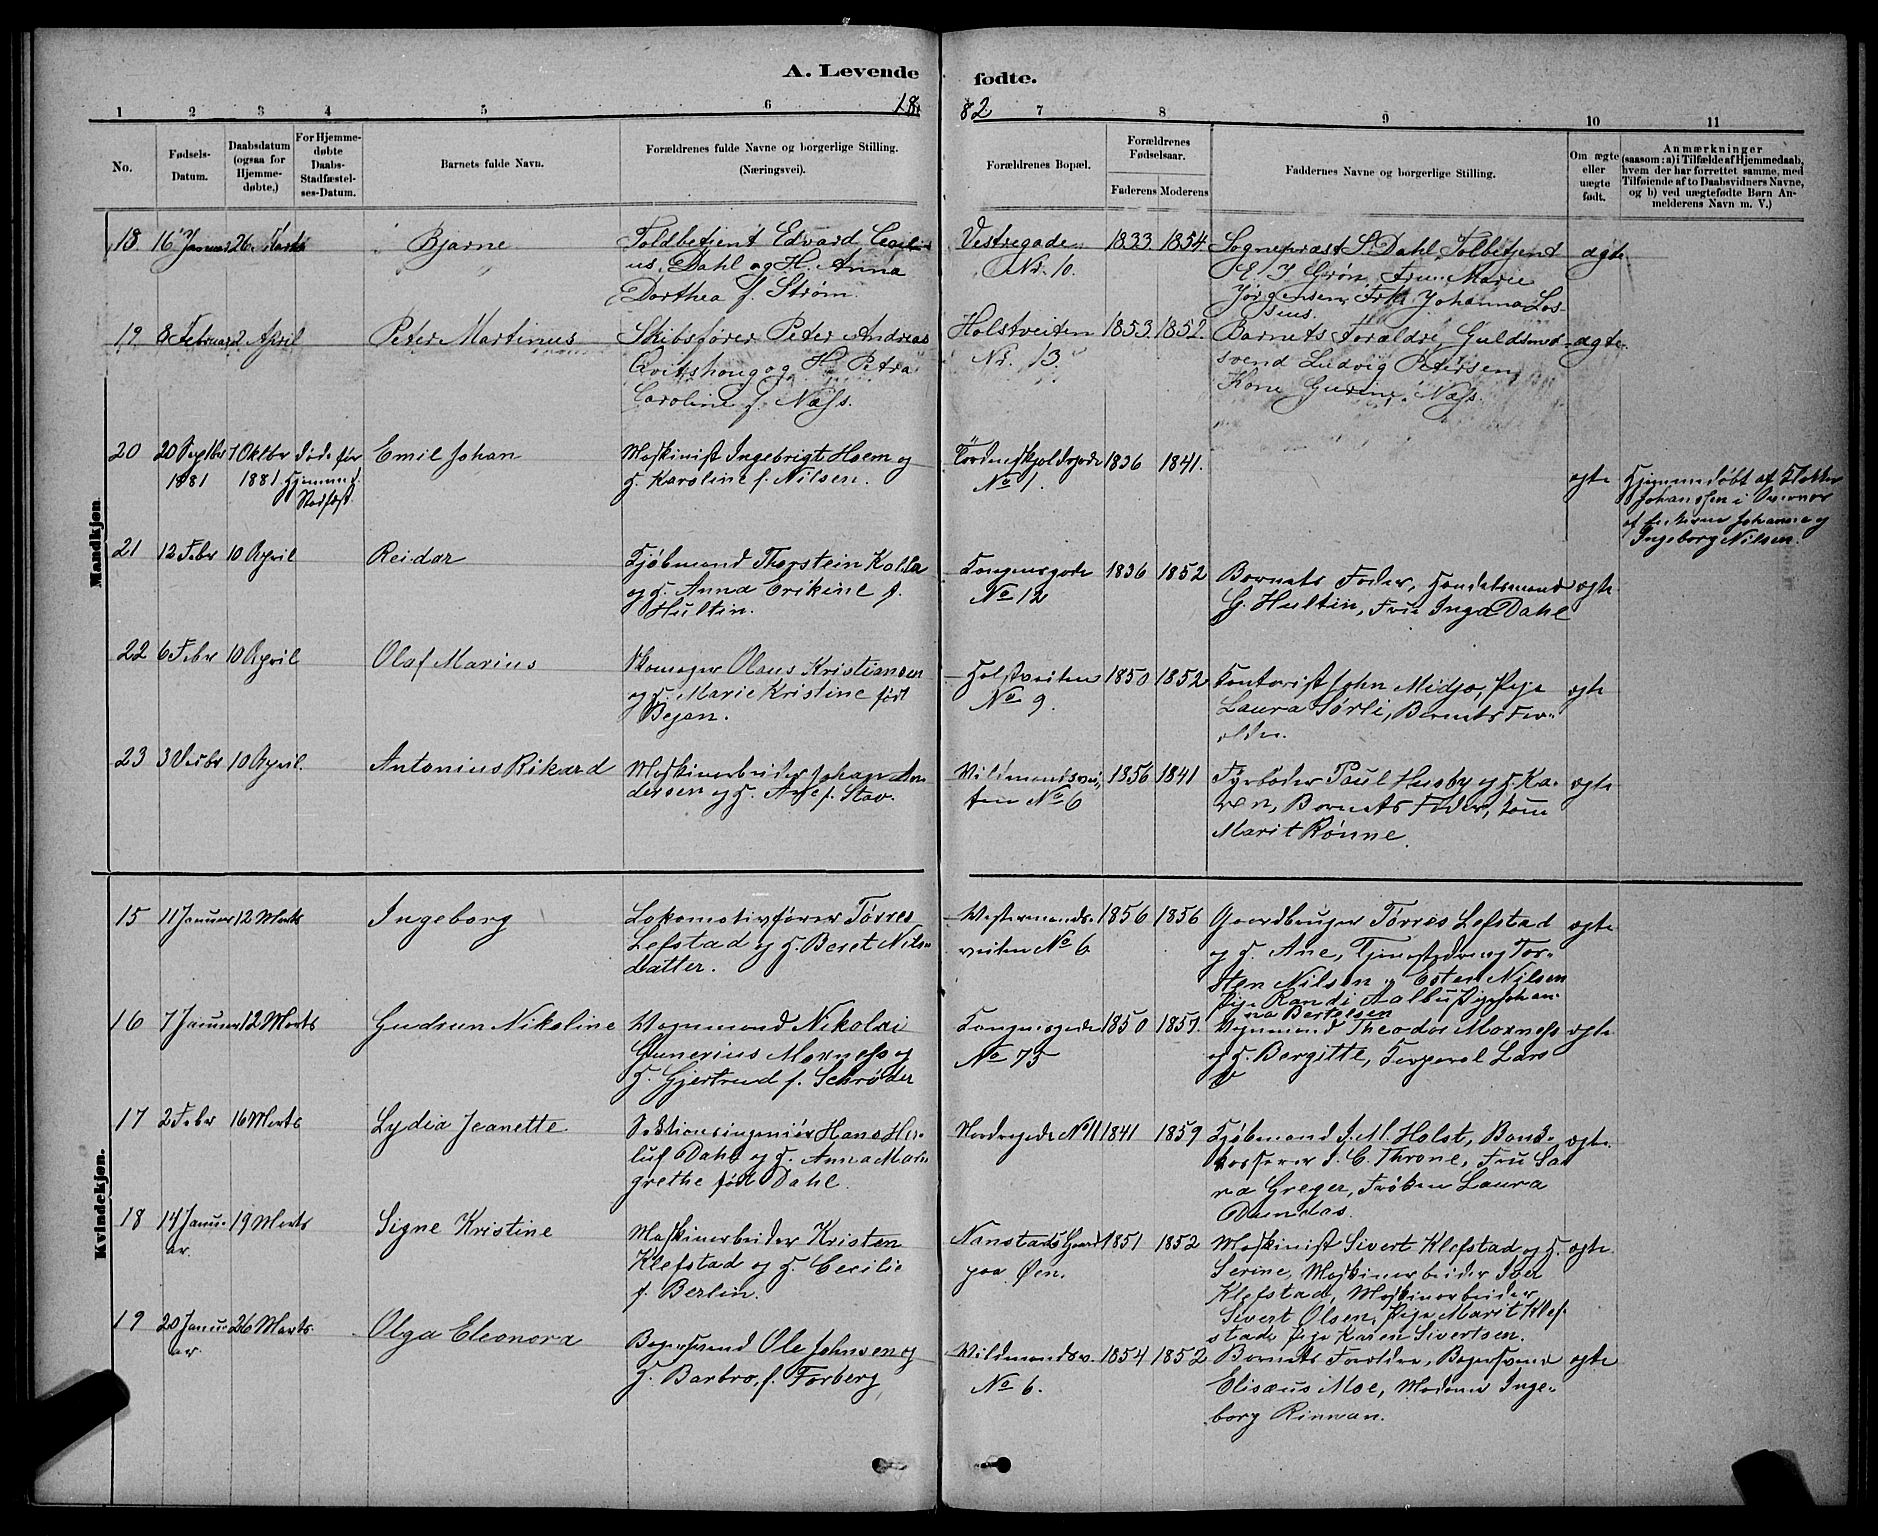 A. Levende fødte.
1882
1 2 3 4 5 6 7 8 9 10 11
No.
Fødsels-
Datum.
Daabsdatum
(ogsaa for
Hjemme-
døbte.)
For Hjemme-
døbte
Daabs-
Stadfæstel-
ses-Datum.
Barnets fulde Navn.
Forældrenes fulde Navne og borgerlige Stilling.
(Næringsvei).
Forældrenes Bopæl.
Forældrenes
Fødselsaar.
Faderens Moderens
Faddernes Navne og borgerlige Stilling.
Om ægte
eller
uægte
født.
Anmærkninger
(saasom: a) i Tilfælde af Hjemmedaab,
hvem der har forrettet samme, med
Tilføiende af to Daabsvidners Navne,
og b) ved uægtefødte Børn An-
melderens Navn m. V.)
Mandkjøn.
18 16 Januar 26 Marts
Bjarne
Toldbetjent Edvard Cecili-
us Dahl og H. Anna
Dorthea f. Strøm.
Vestregade
Nr. 10.
1833 1854
Sognepræst S. Dahl, Tolbetjent
E. J. Grøn, Frue Marie
Jørgensen, Frk Johanna Los-
sius.
ægte
19 8 Februar 2 April
Peter Martinus
Skibsfører Peter Andreas
Qvitshoug og H. Petra
Caroline f. Næss.
Holstveiten
Nr. 13.
1853 1852.
Barnets Forældre, Guldsmed-
svend Ludvig Petersen,
Kone Gurine Næss.
ægte.
20 20 Septbr 1881
7 Oktbr 1881
Døde før
Hjemmed.
Stadfæst.
Emil Johan
Maskinist Ingebrigt Hoem og
H. Karoline f. Nilsen.
Tordenskjoldsgade
No 1.
1836 1841.
ægte
Hjemmedøbt af Klokker
Johanssen i Overvær
af Johanna og
Ingeborg Nilsen.
21 12 Febr 10 April
Reidar
Kjøbmand Thorstein Kolda
og H. Anna Erikine f.
Hultin.
Kongensgade
No 12
1836 1852
Barnets Fader, Handelsmand
G. Hultin, Frue Inga Dahl
ægte
22 6 Febr 10 April
Olaf Marius
Skomager Olaus Kristiansen
og H. Marie Kristine født
Bejan.
Holstveiten
No 9.
1850 1852
Kontorist John Midjo, Pige
Laura Sørli, Barnets For-
ældre.
ægte
23 3 Decbr 10 April.
Antonius Rikard
Maskinarbeider Johan An-
dersen og H. Ane f. Stav.
Vildmandsvei-
ten No 6
1856 1841
Fyrbøder Paul Husby og H. Ka-
ren, Barnets Fader, Kone
Marit Rønne.
ægte
Kvindekjøn.
15 11 Januar 12 Marts
Ingeborg
Lokomotivfører Tørres
Lefstad og H. Beret Nils-
datter.
Vestermands-
veiten No 6
1856 1856
Gaardbruger Tørres Lefstad
og H. Ane, Tjenestedreng Tor-
sten Nilsen, Esten Nilsen
Pige Randi Aalbu, Pige Johan-
na Bertelsen
ægte
16 7 Januar 12 Marts
Gudrun Nikoline
Vognmand Nikolai
Gunerius Moxness og
H. Gjertrud f. Schrøder
Kongensgade
No 75
1850 1857.
Vognmand Theodor Moxness
og H. Bergitte, Korporal Lars
ægte
17 2 Febr 16 Marts
Lydia Jeanette
Sektionsingeniør Hans Her-
luf Dahl og H. Anna Mar-
grethe født Dahl.
Nordregade No 11
1841 1859
Kjøbmand J. M. Holst, Bank-
kasserer J. C. Throne, Fru Sa-
ra Greger, Frøken Laura
ægte.
18 14 Janu-
ar.
19 Marts
Signe Kristine
Maskinarbeider Kristen
Klefstad og H. Cecilie
f. Berlin.
Nanstads Gaard
paa Øen.
1851 1852
Maskinist Sivert Klefstad og H.
Serine, Maskinarbeider Iver
Klefstad, Maskinarbeider
Sivert Olsen, Pige Marit Klef-
stad, Pige Karen Sivertsen.
ægte.
19 20 Janu-
ar.
26 Marts.
Olga Eleonora
Bagersvend Ole Johnsen og
H. Barbro, f. Forberg
Vildmandsv.
No 6.
1854 1852
Barnets Forældre, Bagersvend
Elisæus Moe, Madame Inge-
borg Rinnan.
ægte